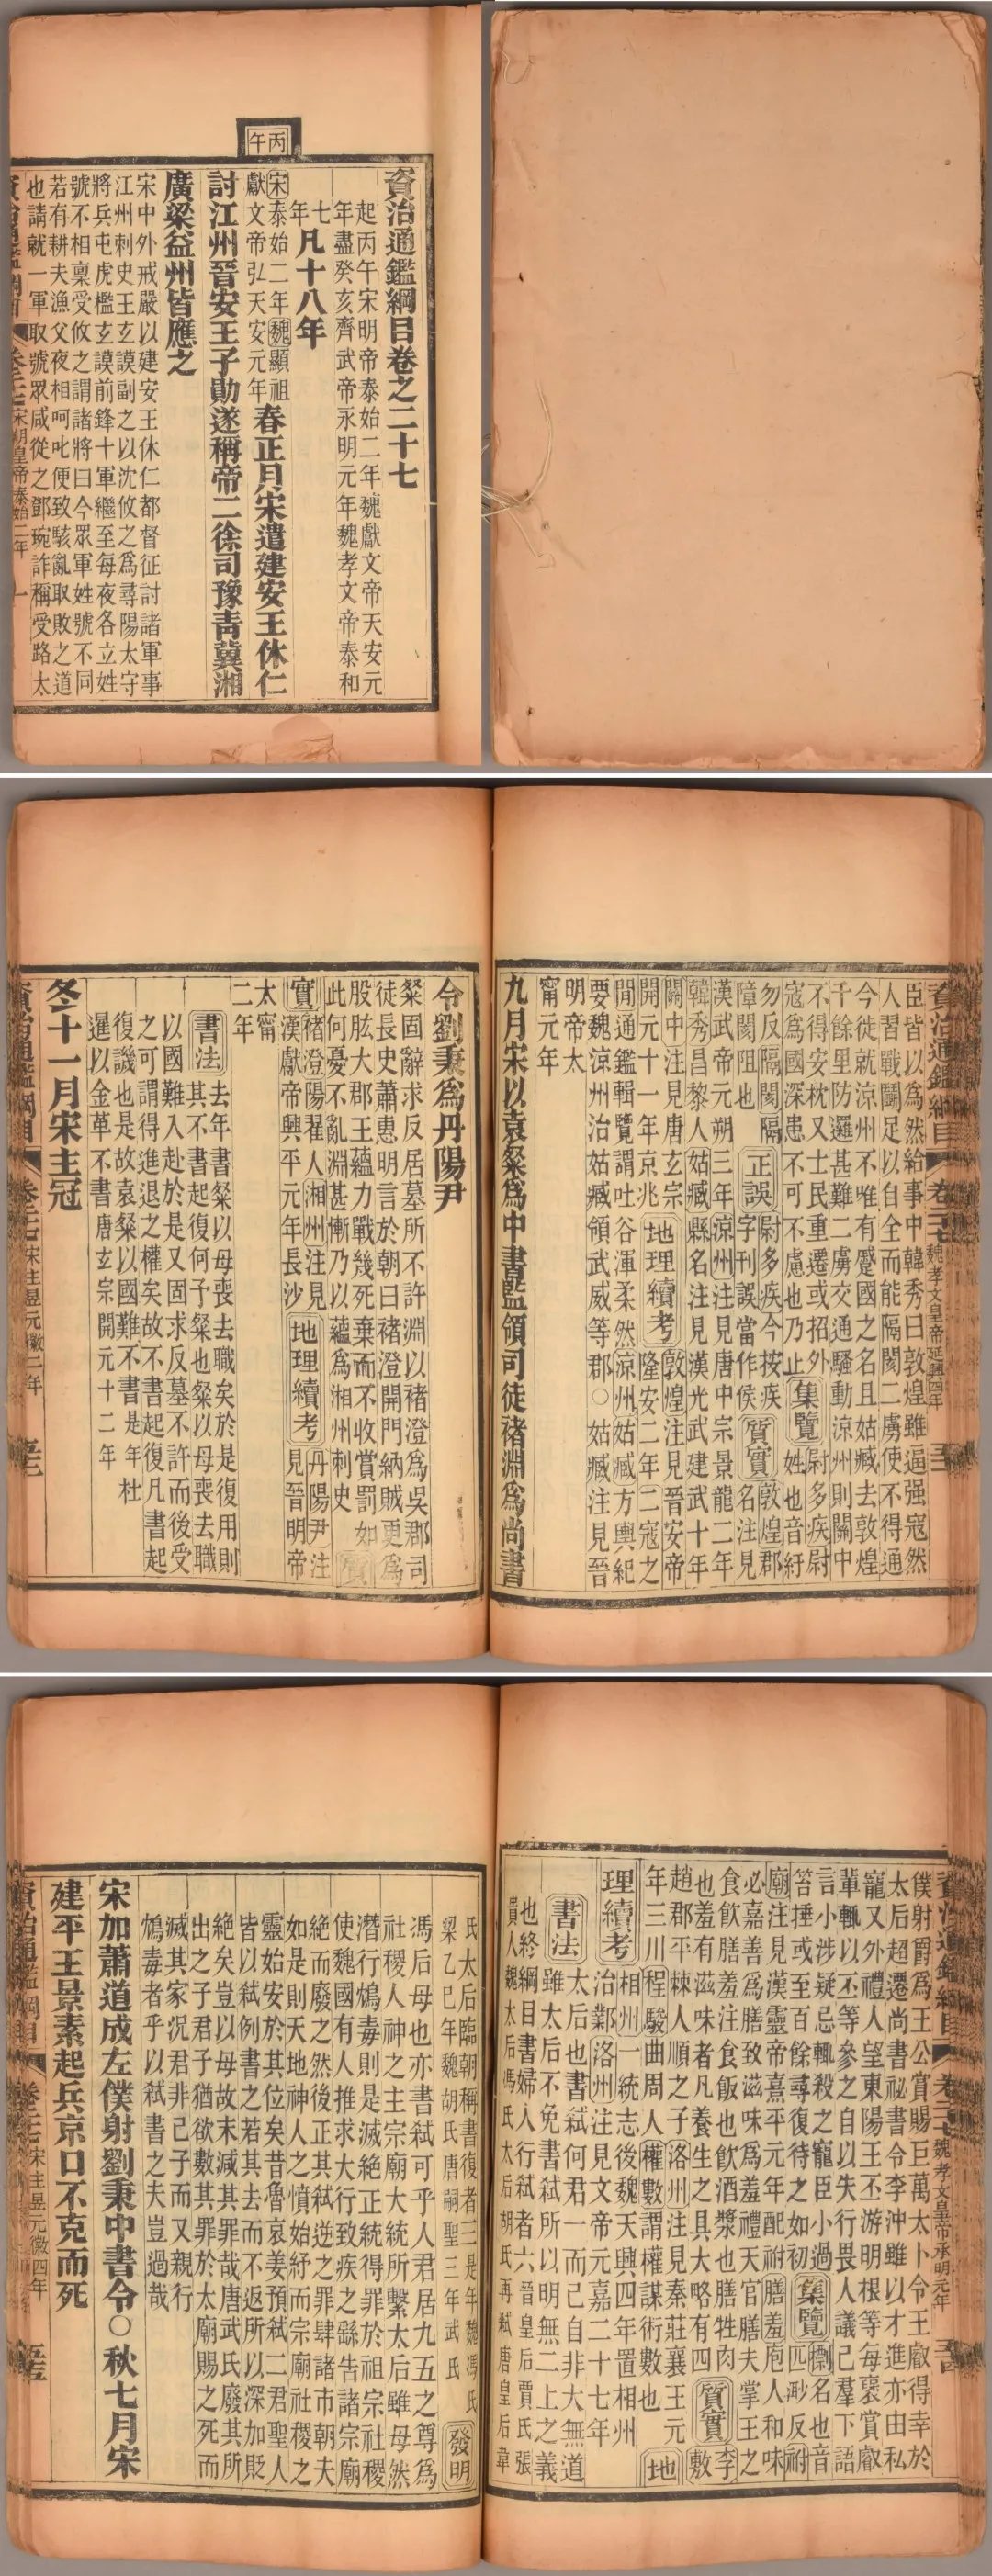 丙午
資治通鑑綱目卷之二十七
起丙午宋明帝泰始二年魏獻文帝天安元
年盡癸亥齊武帝永明元年魏孝文帝泰和
七年凡十八年
宋泰始二年魏顯祖
獻文帝弘天安元年春正月宋遣建安王休仁
討江州晉安王子勛遂稱帝二徐司豫青冀湘
廣梁益州皆應之
宋中外戒嚴以建安王休仁都督征討諸軍事
江州刺史王玄謨副之以沈攸之為尋陽太守
將兵屯虎檻玄謨前鋒十軍繼至每夜各立姓
號不相稟受攸之謂諸將曰今眾軍姓號不同
若有耕夫漁父夜相呵叱便致駭亂取敗之道
也請就一軍取號眾咸從之鄧琬詐稱受路太
資治通鑑綱目 卷二十七 宋明皇帝泰始二年 一
資治通鑑綱目 卷二十七 魏孝文皇帝延興四年
臣皆以為然給事中韓秀曰敦煌雖逼强寇然
人習戰鬭足以自全而能隔閡二虜使不得通
今徙就涼州不唯有蹙國之名且姑臧去敦煌
千餘里防邏甚難二虜交通騷動涼州則關中
不得安枕又士民重遷或招外
寇為國深患不可不慮也乃止 集覽 尉多疾尉
姓也音紆
勿反隔閡隔
障閡阻也 正誤 尉多疾今按疾
字刊誤當作侯 質實 敦煌郡
名注見
漢武帝元朔三年涼州注見唐中宗景龍二年
韓秀昌黎人姑臧縣名注見漢光武建武十年
關中注見唐玄宗
開元十一年京兆 地理續考 敦煌注見晉安帝
隆安二年二寇之
閒通鑑輯覽謂吐谷渾柔然涼州姑臧方輿紀
要魏涼州治姑臧領武威等郡○姑臧注見晉
明帝太
甯元年
九月宋以袁粲為中書監領司徒褚淵為尚書
令劉秉為丹陽尹
粲固辭求反居墓所不許淵以褚澄為吳郡司
徒長史蕭惠明言於朝曰褚澄開門納賊更為
股肱大郡王蘊力戰幾死棄而不收賞罰如
此何憂不亂淵甚慚乃以蘊為湘州刺史 質
實 褚澄陽翟人湘州注見
漢獻帝興平元年長沙 地理續考 丹陽尹注
見晉明帝
太甯
二年
書法 去年書粲以母喪去職矣於是復用則
其不書起復何子粲也粲以母喪去職
以國難入赴於是又固求反墓不許而後受
之可謂得進退之權矣故不書起復凡書起
復譏也是故袁粲以國難不書是年杜
暹以金革不書唐玄宗開元十二年
冬十一月宋主冠
資治通鑑綱目 卷二十七 宋主昱元徽二年
資治通鑑綱目 卷二十七 魏孝文皇帝承明元年
僕射爵為王公賞賜巨萬太卜令王叡得幸於
太后超遷尚書祕書令李沖雖以才進亦由私
寵又外禮人望東陽王丕游明根等每褒賞叡
輩輒以丕等參之自以失行畏人議己羣下語
言小涉疑忌輒殺之寵臣小過
笞捶或至百餘尋復待之如初 集覽 名也音
匹眇反祔
廟注見漢靈帝熹平元年配祔膳羞庖人和味
必嘉善為膳致滋味為羞禮天官膳夫掌王之
食飲膳羞注食飯也飲酒漿也膳牲肉
也羞有滋味者凡養生之具大略有四 質實 李
敷
趙郡平棘人順之子洛州注見秦莊襄王元
年三川程駿曲周人權數謂權謀術數也 地
理續考 相州一統志後魏天興四年置相州
治鄴洛州注見文帝元嘉二十七年
書法 太后也書弒何君一而己自非大無道
雖太后不免書弒所以明無二上之義
也終綱目書婦人行弒者六晉皇后賈氏張
貴人魏太后馮氏太后胡氏再弒唐皇后韋
氏太后臨朝稱書復者三是年魏馮氏
梁乙巳年魏胡氏唐嗣聖三年武氏 發明
馮后母也亦書弒可乎人君居九五之尊為
社稷人神之主宗廟大統所繫太后雖母然
潛行鴆毒則是滅絕正統得罪於祖宗社稷
使魏國有人推求大行致疾之繇告諸宗廟
絕而廢之然後正其弒逆之罪肆諸市朝夫
如是則天地神人之憤始紓而宗廟社稷之
靈始安於其位矣昔魯哀姜預弒二君聖人
皆以弒例書之若其去而不返所以深加貶
絕矣豈以母故末減其罪哉唐武氏廢其所
出之子君子猶欲數其罪於太廟賜之死而
滅其家況君非己子而又親行
鴆毒者乎以弒書之夫豈過哉
宋加蕭道成左僕射劉秉中書令○秋七月宋
建平王景素起兵京口不克而死
資治通鑑綱目 卷二十七 宋主昱元徽四年